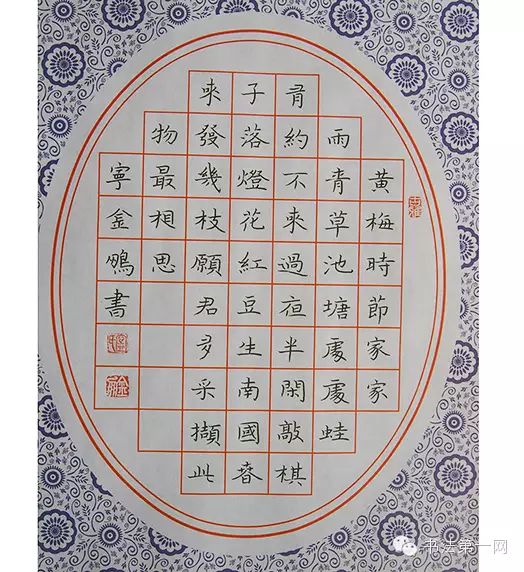 黃梅時節家家
雨青草池塘處處蛙
有約不來過夜半閑敲棋
子落燈花紅豆生南國春
來發幾枝願君多采擷此
物最相思
寧金書
书法第一网